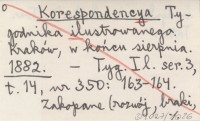 Korespondencya Ty-
godnika ilustrowanego.
Kraków, w końcu sierpnia.
1882. — Tyg. Il. ser. 3,
t. 14, nr 350: 163-164.
Zakopane (rozwój, braki,